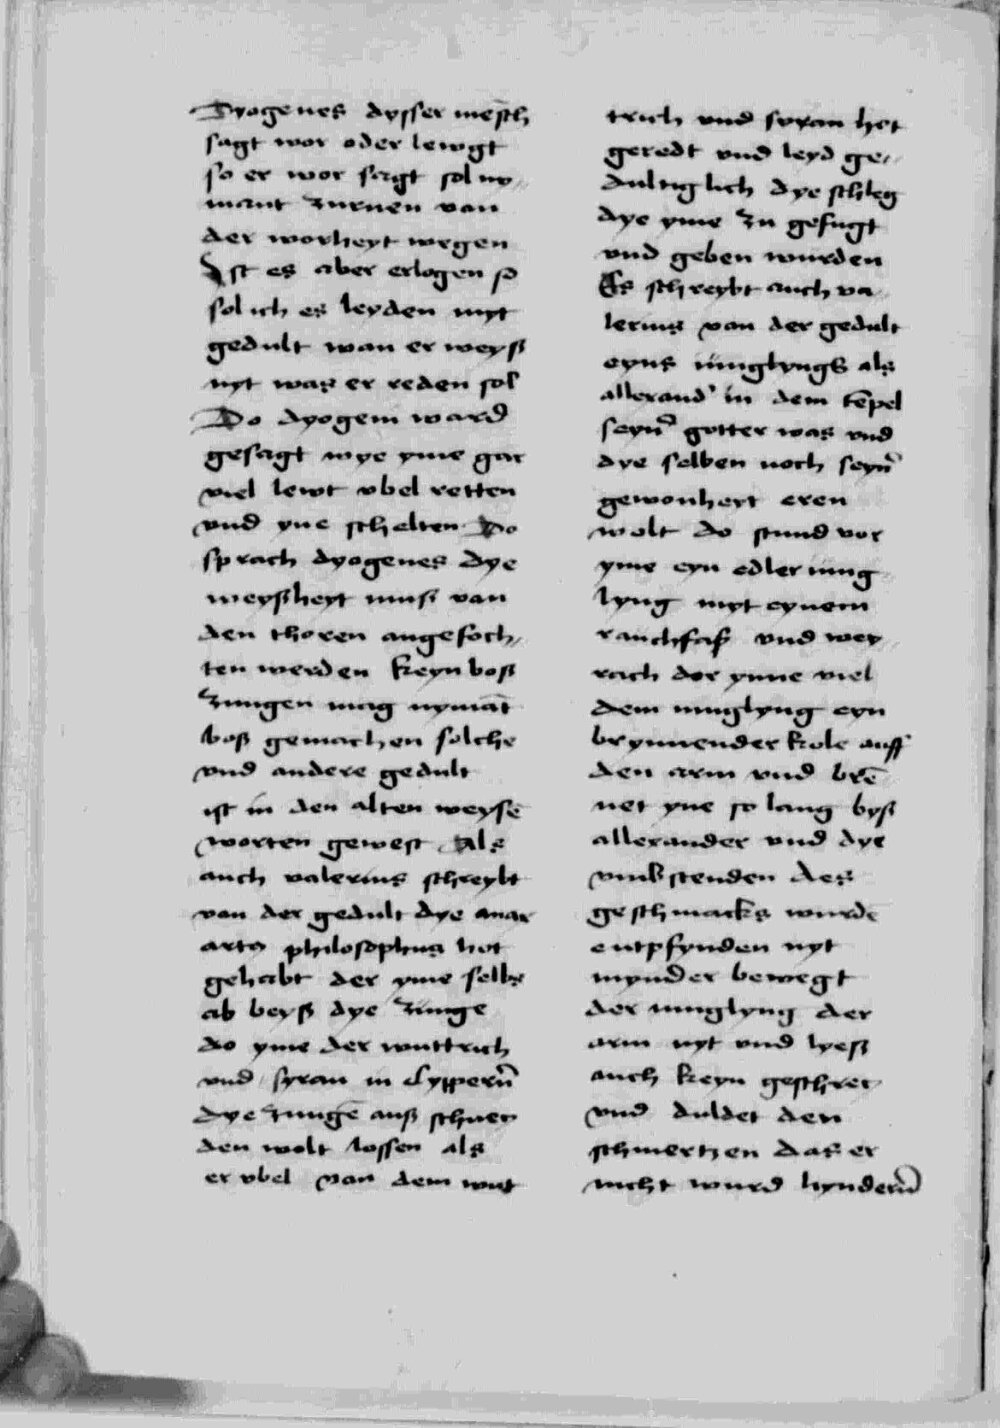 Dyogenes dysser mēsch
sagt wor oder lewgt
so er wor sagt sol ny-
mant zurnen van
der worheyt wegen
Ist es aber erlogen so
sol ich es leyden myt
gedult wan er weyß
nyt was er reden sol
Do dyogeni ward
gesagt wye yme gar
viel lewt vbel retten
vnd yne schelten Do
sprach dyogenes dye
weyßheyt muß van
den thoren angefoch-
ten werden keyn boß
zungen mag nymāt
boß gemachen solche
vnd andere gedult
ist in den alten weysē
worten gewest Als
auch valerius schreybt
van der gedult dye anax
artg philosophus hot
gehabt der yme selbs
ab beyß dye zunge
do yme der wuttrich
vnd syran in Cyppern̄
dye zungē auß schney
den wolt lossen als
er vbel van dem wut
trich vnd syran het
geredt vnd leyd ge-
dultiglich dye schleg
dye yme zu gefugt
vnd geben wurden
Es schreybt auch va-
lerius van der gedult
eyns iunglyngs als
allexand' in dem tēpel
seyn' gotter was vnd
dye selben noch seyn'
gewonheyt eren
wolt do stund vor
yme eyn edler iung-
lyng myt eynem
rauchfaß vnd wey-
rach dor ynne viel
dem iunglyng eyn
brynnender kole auff
den arm vnd brē
net yne so lang byß
allexander vnd dye
vmbstenden des
geschmacks wurdē
entpfynden nyt
mynder bewegt
der iunglyng der
arm nyt vnd lyeß
auch keyn geschrey
vnd duldet den
schmertzen das er
nicht wurd hyndern̄